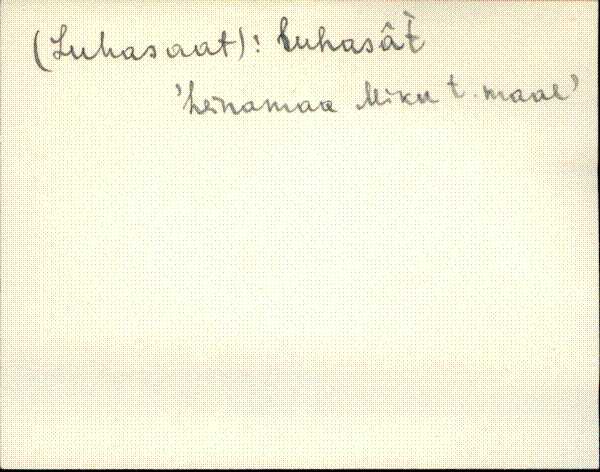 (Luhasaat): Luhasât̀
'heinamaa Miku t. maal'